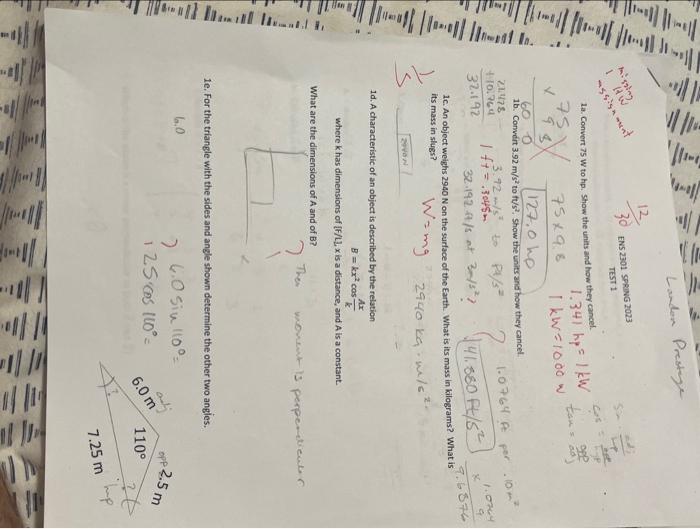 London Prestage
12
30
ENS 2301 SPRING 2023
TEST 1
missing
1 HW
assignment
1a. Convert 75 W to hp. Show the units and how they cancel.
75 x 9.8
1.341 hp = 1 kW
1 kW = 1000 W
75
x 9.8
60 0
127.0 hp
tan = opp
1b. Convert 3.92 m/s² to ft/s². Show the units and how they cancel.
3.92 m/s² to ft/s²
1 ft = .3048m
21.428
+10.764
32.192
?
1.0764 ft per .10 m²
41.380 ft/s²
9.6876
1c. An object weighs 2940 N on the surface of the Earth. What is its mass in kilograms? What is
its mass in slugs?
W = mg
2940 kg · m/s²
1
5
1d. A characteristic of an object is described by the relation
B = kx² cos Ax/k
where k has dimensions of [F/L], x is a distance, and A is a constant.
What are the dimensions of A and of B?
? Then moment is perpendicular
1e. For the triangle with the sides and angle shown determine the other two angles.
6.0
? 6.0 sin 110° =
2.5 cos 110° =
adj
6.0 m
110°
opp 2.5 m
?
7.25 m
hyp